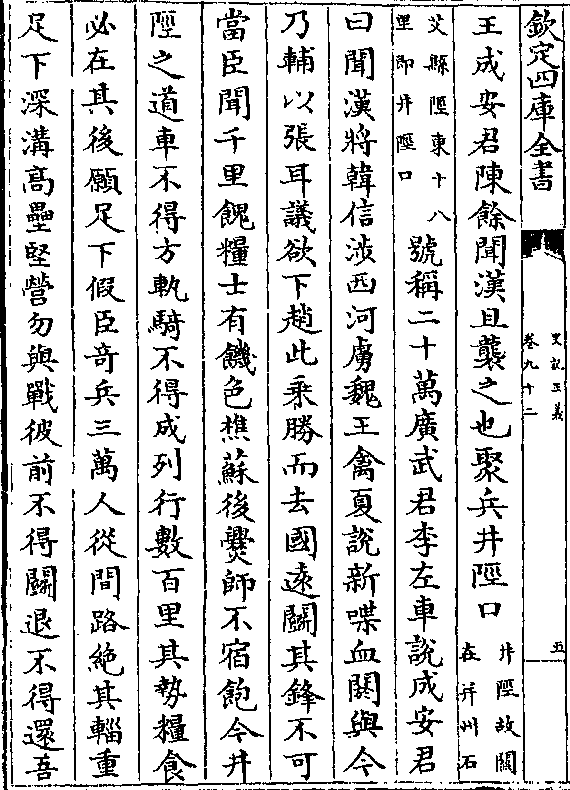 欽定四庫全書
史記正義
卷九十二
五
王成安君陳餘聞漢且襲之也聚兵井陘口井陘故關在并州石
艾縣陘東十八里即井陘口號稱二十萬廣武君李左車說成安君
曰聞漢將韓信涉西河虜魏王禽夏說新喋血閼與今
乃輔以張耳議欲下趙此乘勝而去國遠鬬其鋒不可
當臣聞千里餽糧士有饑色樵蘇後爨師不宿飽今井
陘之道車不得方軌騎不得成列行數百里其勢糧食
必在其後願足下假臣奇兵三萬人從間路絶其輜重
足下深溝髙壘堅營勿與戰彼前不得鬬退不得還吾